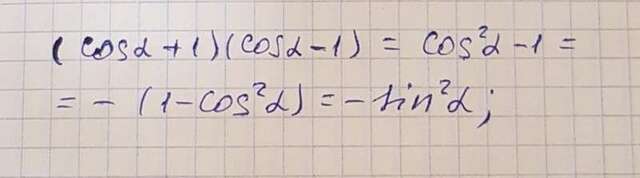 (cosα+1)(cosα-1) = cos²α-1 =
= - (1-cos²α) = - sin²α;